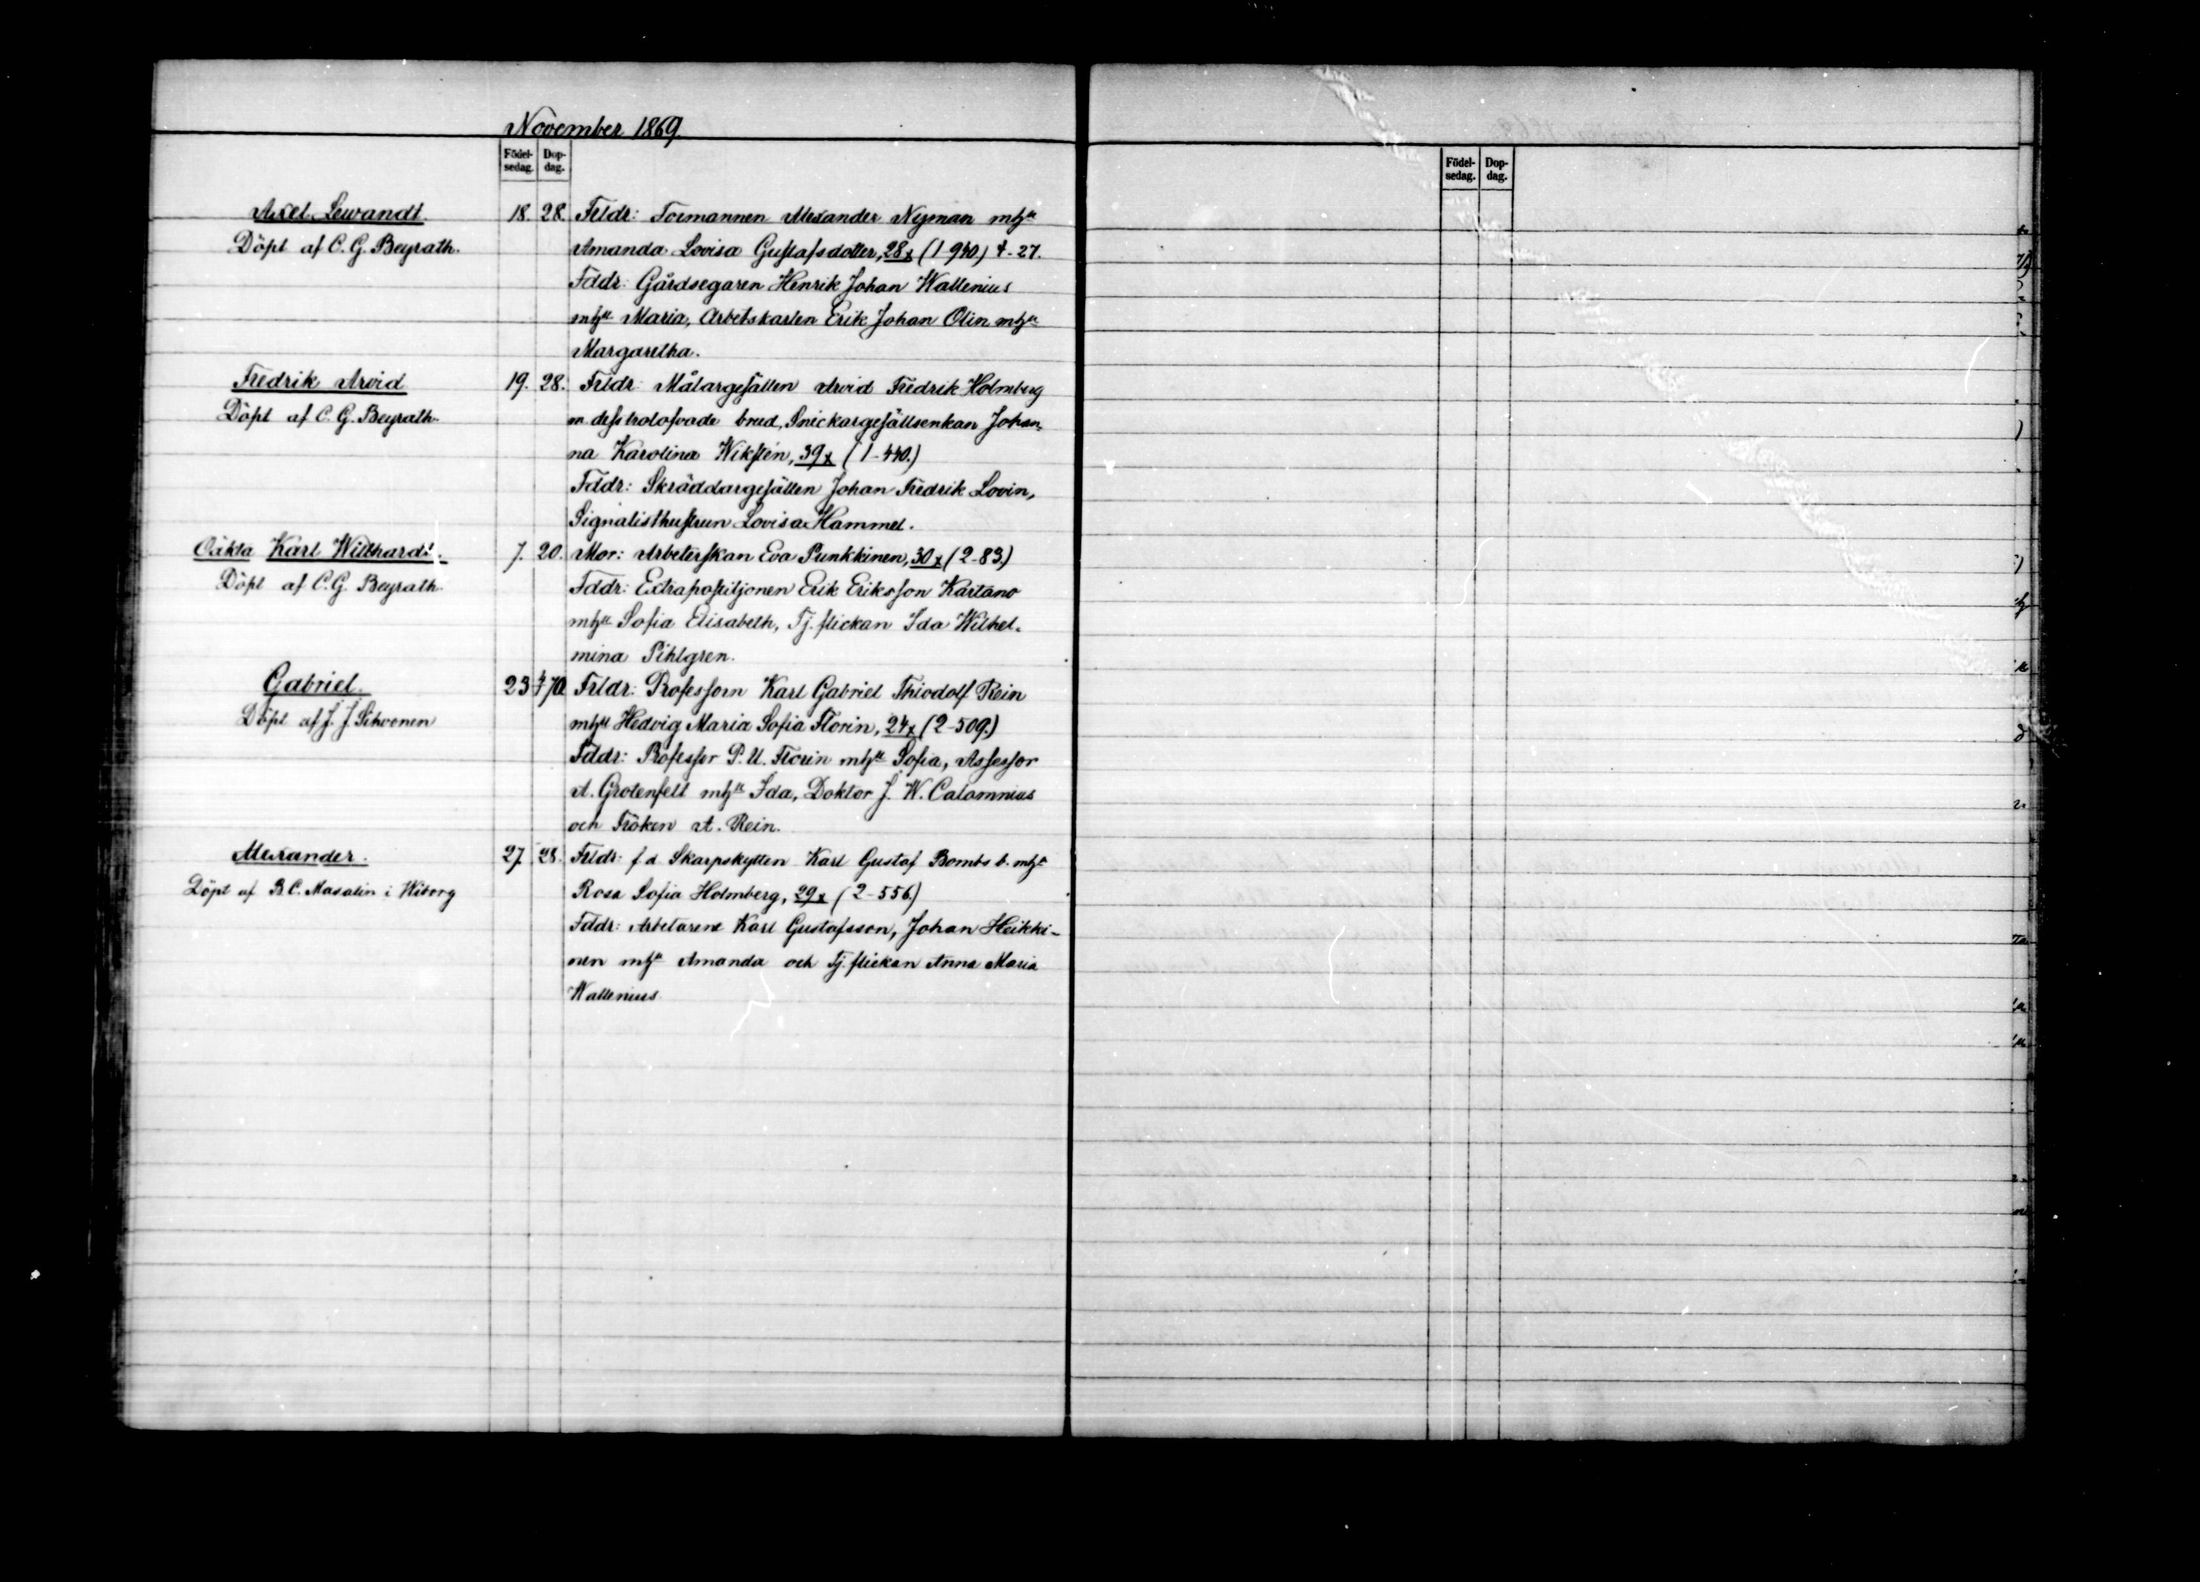 November 1869.
Födel-
sedag.
Dop-
dag.
Axel Lewandt.
Döpt af C. G. Beyrath.
18. 28. Frldr: Formannen Alexander Nyman mhu
Amanda Lovisa Gustafsdotter, 28 x (1-940.) †-27.
Fddr: Gårdsegaren Henrik Johan Wallenius
mhu Maria, Arbetskarlen Erik Johan Olin mhu
Margaretha.
Fredrik Arvid
Döpt af C. G. Beyrath.
19. 28. Frldr: Målargesällen Arvid Fredrik Holmberg
m dess trolofvade brud, Snickargesällsenkan Johan-
na Karolina Wiksten, 39 x (1-440.)
Fddr: Skräddargesällen Johan Fredrik Lovin,
Signalisthustrun Lovisa Hammel.
Oäkta Karl Willhard.
Döpt af C. G. Beyrath.
7. 20. Mor: Arbeterskan Eva Punkkinen, 30 x (2-83.)
Fddr: Extrapostiljonen Erik Eriksson Kartano
mhu Sofia Elisabeth, Tj. flickan Ida Wilhel-
mina Pihlgren.
Gabriel.
Döpt af J. J. Sihvonen
23 70 Frldr: Professorn Karl Gabriel Thiodolf Rein
mhu Hedvig Maria Sofia Florin, 24 x (2-509.)
Fddr: Professor P. U. Florin mhu Sofia, Assessor
A. Grotenfelt mhu Ida, Doktor J. W. Calamnius
och Fröken A. Rein.
Alexander.
Döpt af B. C. Masalin i Wiborg
27. 28. Frldr: f d Skarpskytten Karl Gustaf Bomb s. b. mhu
Rosa Sofia Holmberg, 29 x (2-556.)
Fddr: Arbetarene Karl Gustafsson, Johan Heikki-
nen mhu Amanda och Tj. flickan Anna Maria
Wallenius.
Födel-
sedag.
Dop-
dag.